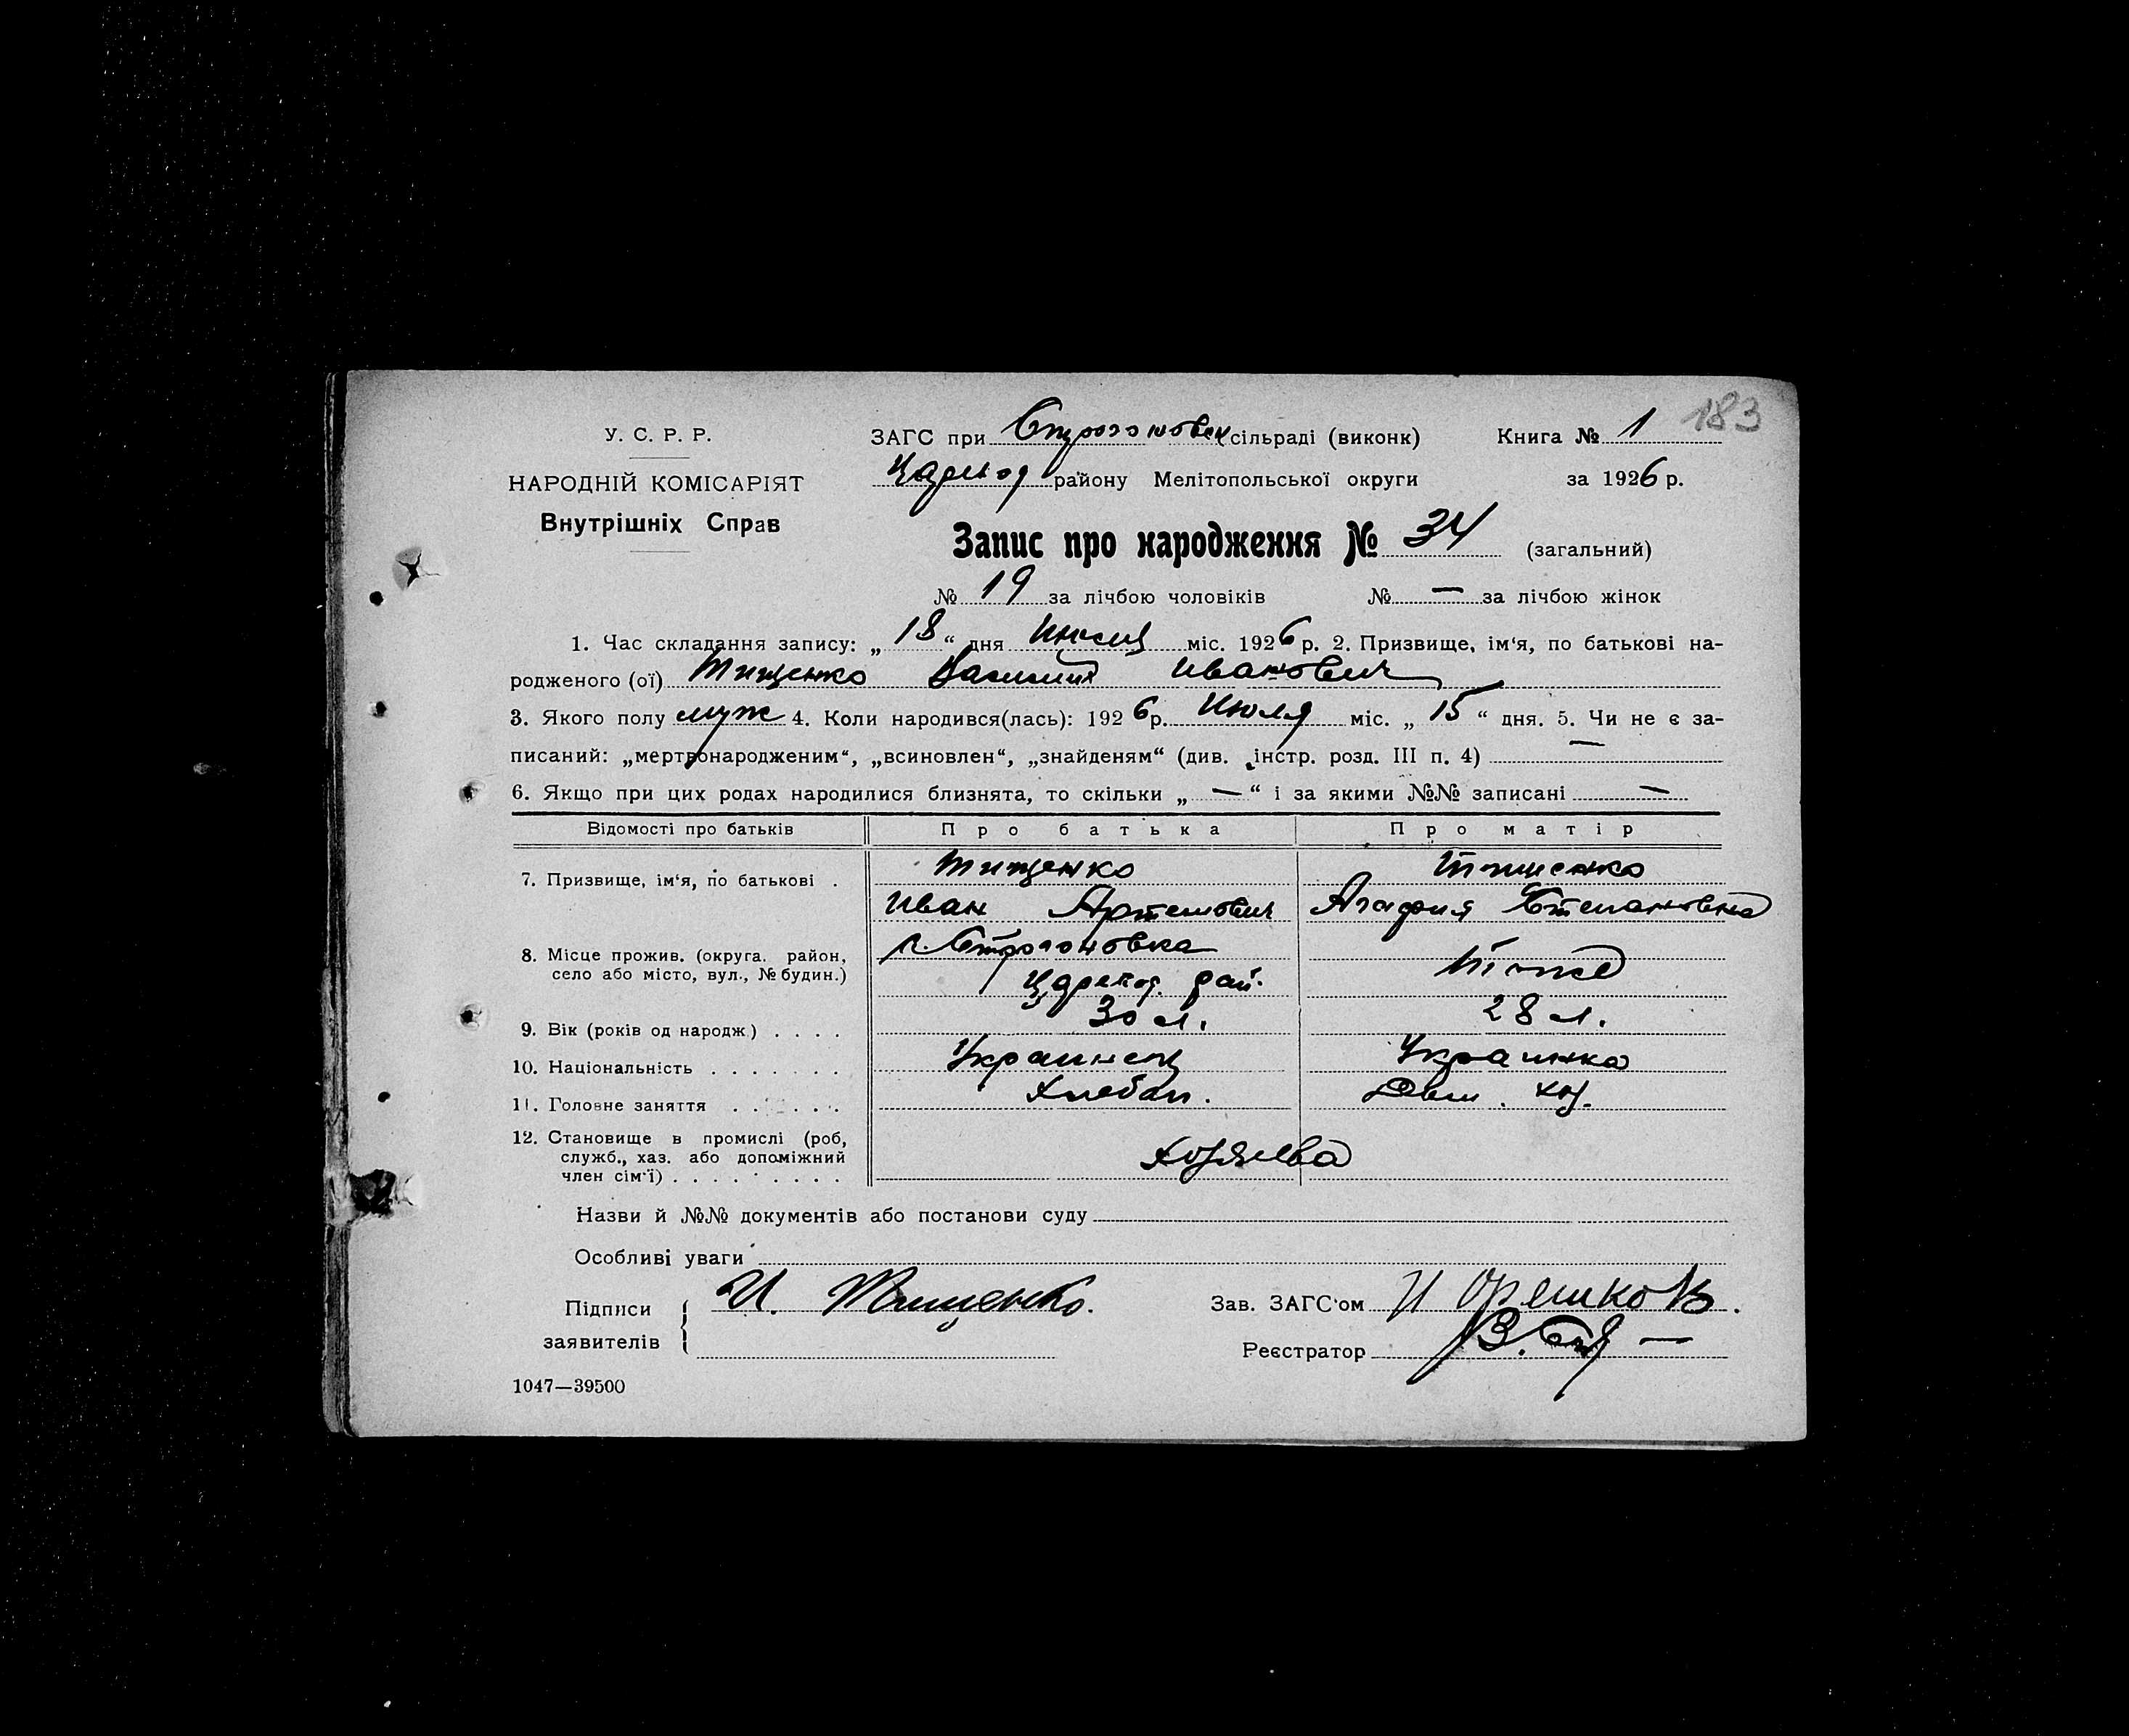 183
У. С. Р. Р.
НАРОДНІЙ КОМІСАРІЯТ
Внутрішніх Справ
ЗАГС при Строгоновск сільраді (виконк) Книга № 1
району Мелітопольської округи за 1926 р.
Запис про народження № 34 (загальний)
№ 19 за лічбою чоловіків № — за лічбою жінок
1. Час складання запису: „18“ дня Июля міс. 1926 р. 2. Призвище, ім‘я, по батькові на-
родженого (ої) Тищенко Василий Иванович
3. Якого полу муж 4. Коли народився(лась): 1926 р. Июля міс. „15“ дня. 5. Чи не є за-
писаний: „мертвонародженим“, „всиновлен“, „знайденям“ (див. інстр. розд. III п. 4) —
6. Якщо при цих родах народилися близнята, то скільки „—“ і за якими №№ записані —
Відомості про батьків Про батька Про матір
7. Призвище, ім‘я, по батькові . Тищенко Тищенко
Иван Артемович Агафия Степановна
8. Місце прожив. (округа, район, село або місто, вул., № будин.) с. Строгоновка Тоже
рай.
9. Вік (років од народж.) . . . . 30 л. 28 л.
10. Національність . . . . . . . Украинец Украинка
11. Головне заняття . . . . . . Хлебоп.
12. Становище в промислі (роб,
служб., хаз. або допоміжний
член сім‘ї) . . . . . . . . .
Хозяева
Назви й №№ документів або постанови суду
Особливі уваги
Підписи заявителів И. Тищенко. Зав. ЗАГС‘ом И Орешков.
Реєстратор
1047—39500